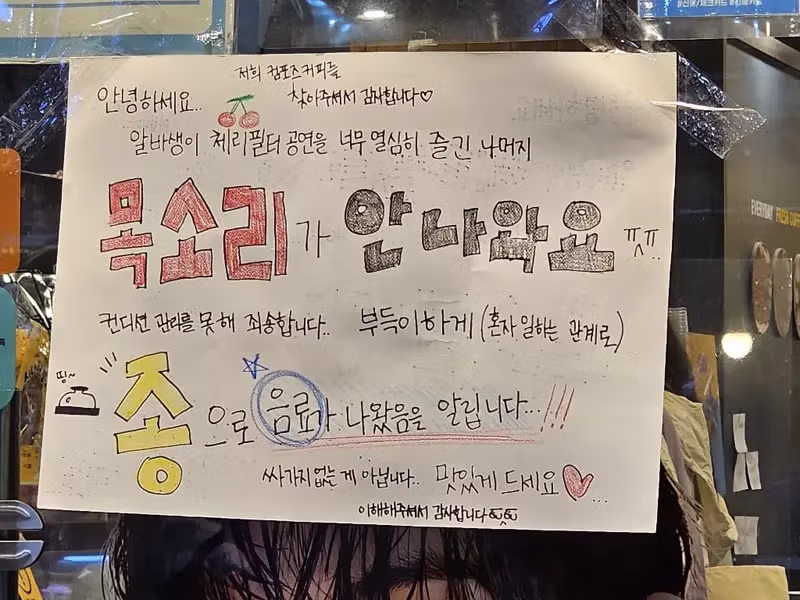 #신용/체크카드 #간편카드
저희 컴포즈커피를
안녕하세요.. 찾아주셔서 감사합니다♡
알바생이 체리필터 공연을 너무 열심히 즐긴 나머지
목소리가 안 나와요 ㅠㅅㅠ..
컨디션 관리를 못해 죄송합니다.. 부득이하게 (혼자 일하는 관계로)
띵~
종으로 음료가 나왔음을 알립니다...!!!
싸가지 없는 게 아닙니다.. 맛있게 드세요♡...
이해해주셔서 감사합니다
EVERYDAY